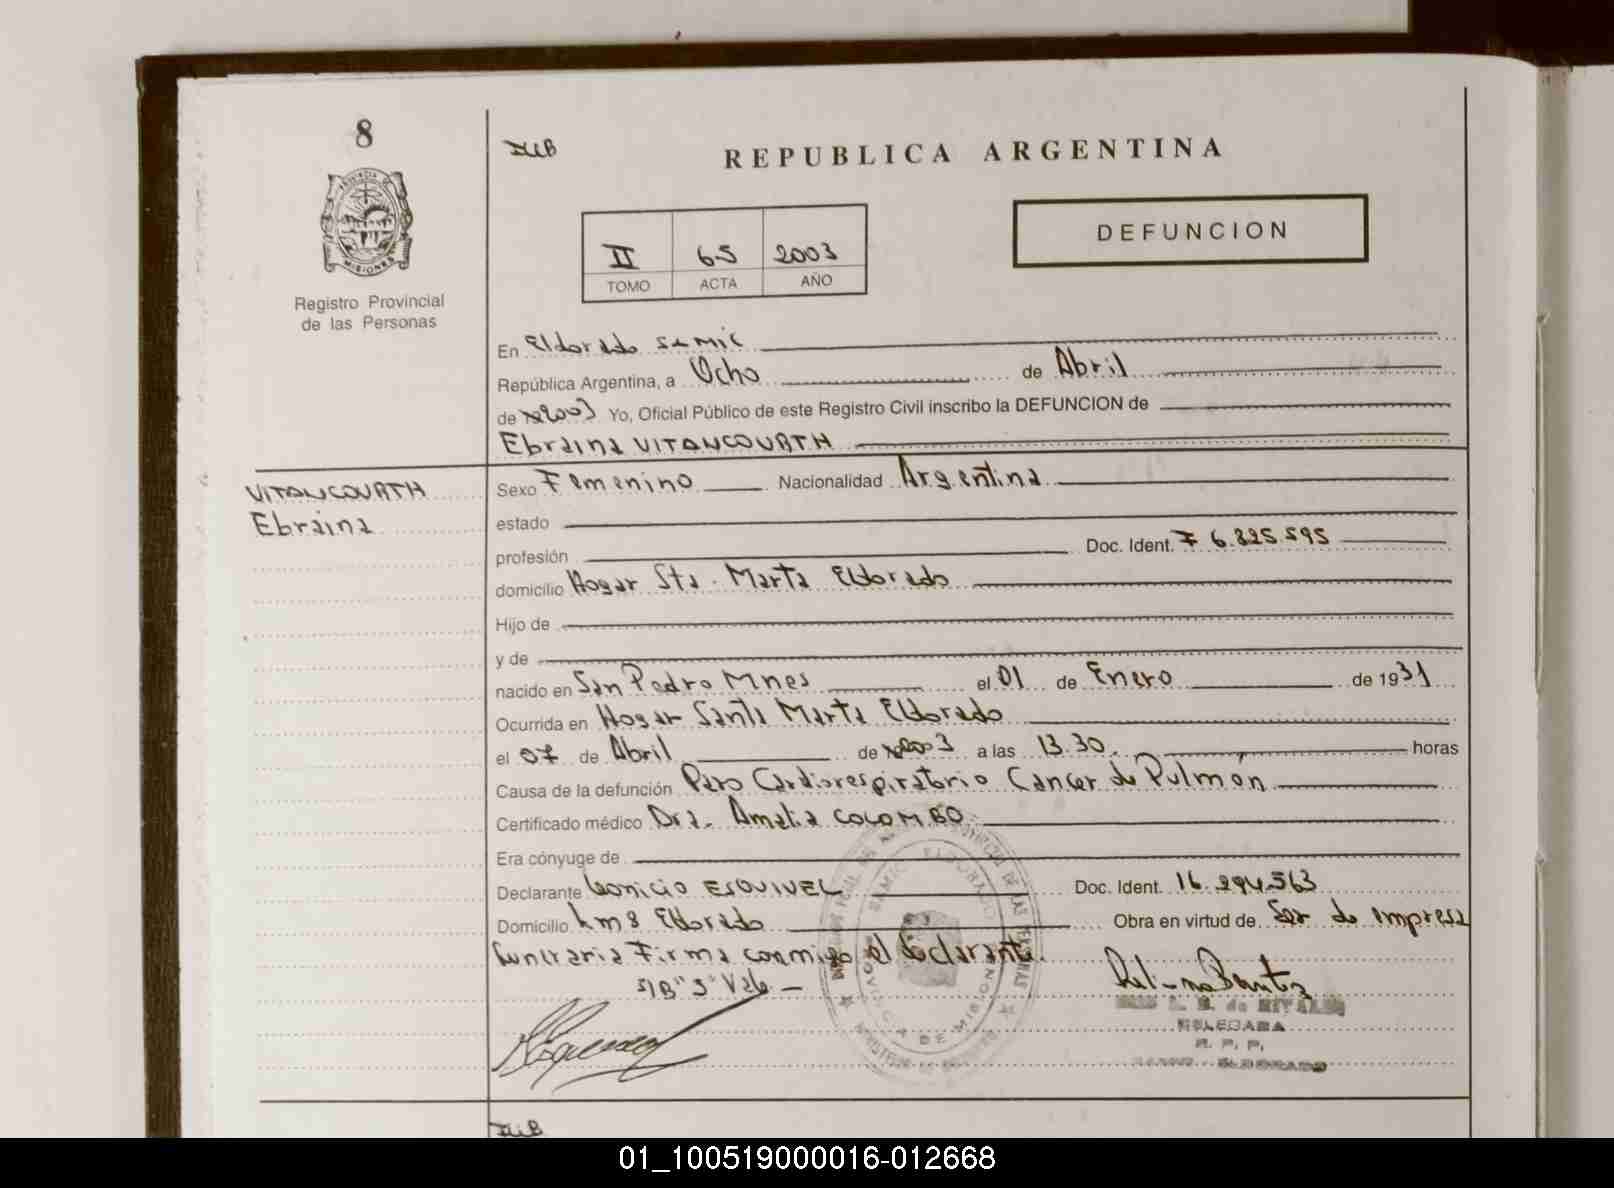 8
PROVINCIA DE
MISIONES
Registro Provincial
de las Personas
REPUBLICA ARGENTINA
DEFUNCION
II 65 2003
TOMO ACTA AÑO
En Eldorado SAMIC
República Argentina, a Ocho de Abril
de 2003 Yo, Oficial Público de este Registro Civil inscribo la DEFUNCION de
Ebraina VITANCOURTH
VITANCOURTH
Ebraina
Sexo Femenino Nacionalidad Argentina
estado
profesión Doc. Ident. F 6.825.595
domicilio Hogar Sta. Marta Eldorado
Hijo de
y de
nacido en San Pedro Mnes el 01 de Enero de 1931
Ocurrida en Hogar Santa Marta Eldorado
el 07 de Abril de 2003 a las 13.30. horas
Causa de la defunción Paro Cardiorespiratorio Cancer de Pulmón
Certificado médico Dra. Amalia COLOMBO
Era cónyuge de
Declarante Leonicio ESQUIVEL Doc. Ident. 16.294.563
Domicilio km 8 Eldorado Obra en virtud de Ser de empresa
funeraria Firma conmigo el declarante.
S/B "3" Vale
DELEGADA
R. P. P.
SAMIC ELDORADO
01_100519000016-012668